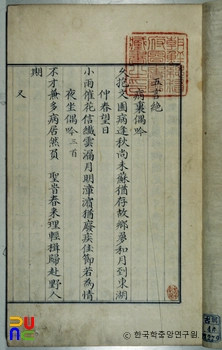 五言絶
病裏偶吟
久抱文園病逢秋尚未蘇猶存故鄉夢和月到東湖
仲春望日
小雨催花信纖雲漏月明漳濱猶廢疾佳節若為情
夜坐偶吟 三首
不才兼多病居然負 聖眷春來理輕楫歸赴野人
期
又
한국학중앙연구원